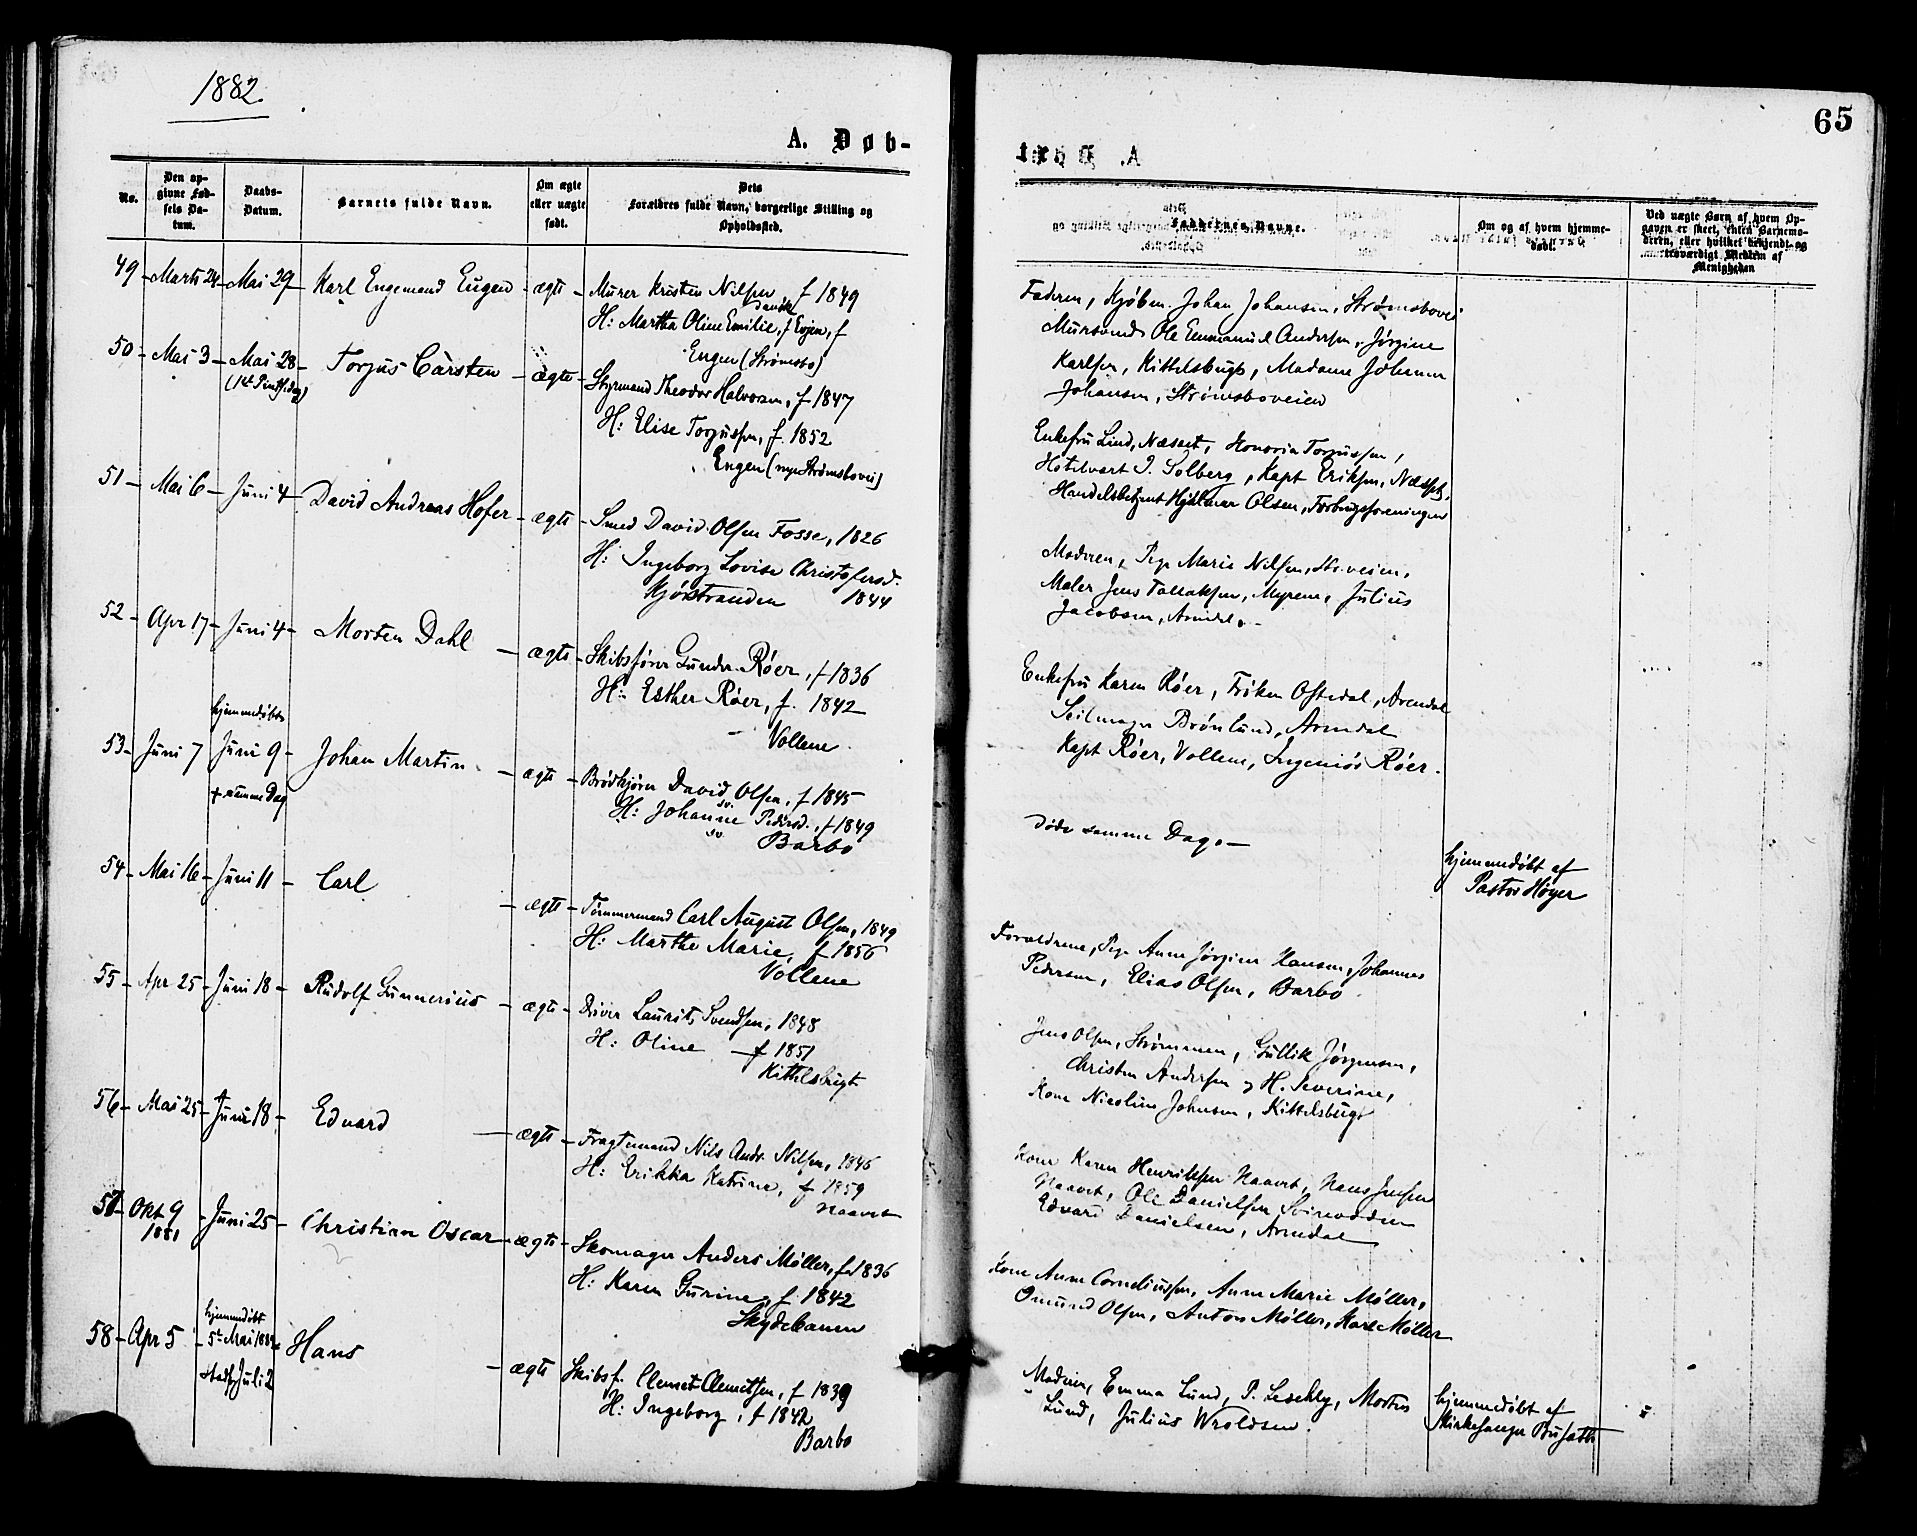 1882.
A. Døb-
No.
Den op-
givne Fød-
sels Da-
tum.
Daabs-
Datum.
Barnets fulde Navn.
Om ægte
eller uægte
født.
Dets
Forældres fulde Navn, borgerlige Stilling og
Opholdssted.
49 – Marts 24 – Mai 29 – Karl Engemand Eugen – ægte – Murer Kristen Nilsen, f 1849
Dansk
H: Martha Oline Emilie, f Evjen, f
Engen (Strømsbo)
50 – Mai 3 – Mai 28 – Torjus Carsten – ægte – Styrmand Theodor Halvorsen, f 1847
(1st Pintsedag)
H: Elise Torjussen, f. 1852
Engen (nye Strømsbovei)
51 – Mai 6 – Juni 4 – David Andreas Hofer – ægte – Smed David Olsen Fosse, 1826
H: Ingeborg Lovise Christofersd.
Kjørstranden 1844
52 – Apr 17 – Juni 4 – Morten Dahl – ægte – Skibsfører Gunder Røer, f 1836
H: Esther Røer, f. 1842
Vollene
hjemmedøbt
53 – Juni 7 Juni 9 – Johan Martin – ægte – Brødkjører David Olsen, f 1845
+ samme Dag
H: Johanne Pedersd., f 1849
Barbo
54 – Mai 16 – Juni 11 – Carl – ægte – Tømmermand Carl August Olsen, 1849
H: Marthe Marie, f 1856
Vollene
55 – Apr 25 – Juni 18 – Rudolf Gunnerius – ægte – Laurits Svendsen, 1848
H: Oline – f 1851
Kittelsbugt
56 – Mai 25 – Juni 18 – Edvard – ægte – Fragtemand Nils Andr. Nilsen, 1846
H: Erikka Katrine, f 1859
Haavet
57 – Okt 9 – Juni 25 – Christian Oscar – ægte – Skomager Anders Møller, f 1836
1881
H: Karen Gurine, f 1842
Skydebanen
hjemmedøbt
58 – Apr 5 – 5te Mai 1882 – Hans – ægte Skibsf. Clemet Clemetsen, f 1839
stadf. Juli 2
H: Ingeborg, f 1842
Barbo
65
Faddernes Navne.
Om og af hvem hjemme-
døbt.
Ved uægte Børn af hvem Op-
gaven er skeet, enten Barnemo-
deren, eller hvilket bekjendt og
troværdigt Medlem af
Menigheden
Faderen, Kjøbm. Johan Johansen, Strømsbovei
Mursvend Ole Emmanuel Andersen, Jørgine
Karlsen, Kittelsbugt, Madame Johanna
Johansen, Strømsboveien
Enkefru Lind, Næsset, Honoria Torjussen,
Hotelvært I. Solberg, Kapt Eriksen, Næsset,
Handelsbetjent Hjalmar Olsen, Forbrugsforeningen
Moderen, Pige Marie Nilsen, Str.veien,
Maler Jens Tallaksen, Myrene, Julius
Jacobsen, Arendal. –
Enkefru Karen Røer, Frøken Ofstedal, Arendal
Seilmager Brønlund, Arendal
Kapt Røer, Vollene, Ingeniør Røer.
døde samme Dag. –
hjemmedøbt af
Pastor Høyer
Forældrene, Pige Anne Jørgine Hansen, Johannes
Pedersen, Elias Olsen, Barbo
Jens Olsen, Strømmen, Gullik Jørgensen,
Christen Andersen og H. Severine,
Kone Nicoline Johnsen, Kittelsbugt
Kone Karen Henriksen Haavet, Hans Jensen
Haavet, Ole Danielsen
Edvard Danielsen, Arendal
Kone Anne Corneliussen, Anne Marie Møller,
Omund Olsen, Anton Møller, Karl Møller
Moderen, Emma Lund, P. Morten
Lund, Julius Wroldsen.
hjemmedøbt af
Kirkesanger